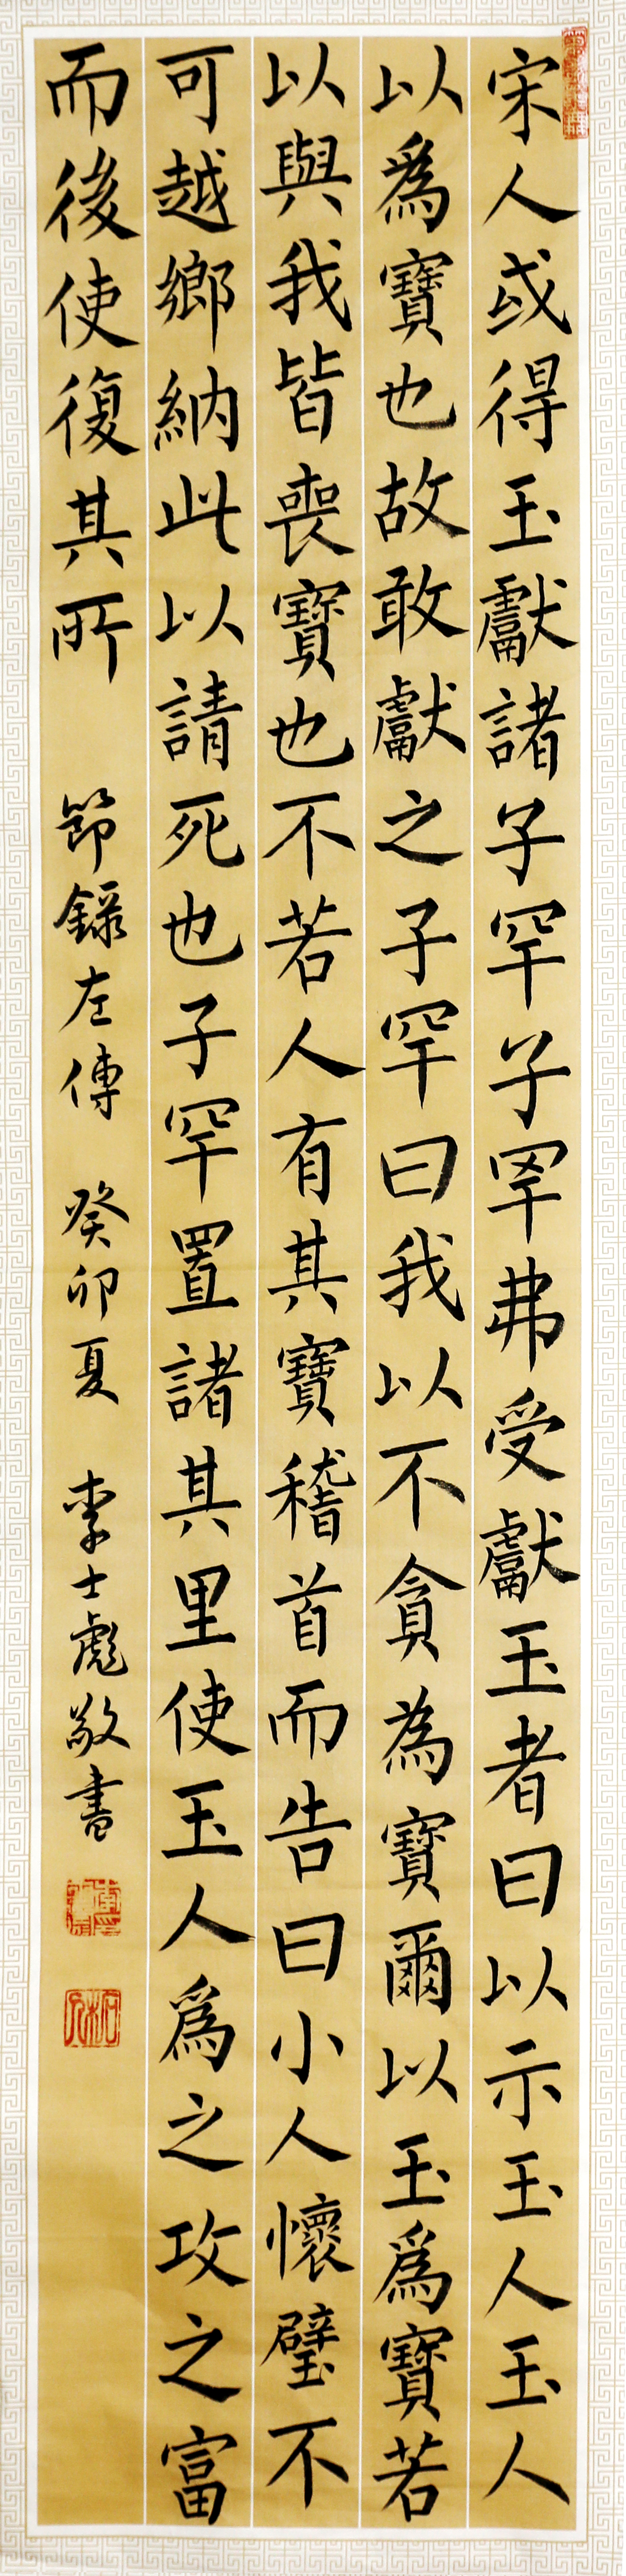 宋人或得玉獻諸子罕子罕弗受獻玉者曰以示玉人玉人
以爲寶也故敢獻之子罕曰我以不貪為寶爾以玉爲寶若
以與我皆喪寶也不若人有其寶稽首而告曰小人懷璧不
可越鄉納此以請死也子罕置諸其里使玉人爲之攻之富
而後使復其所
節錄左傳 癸卯夏 李士彪敬書